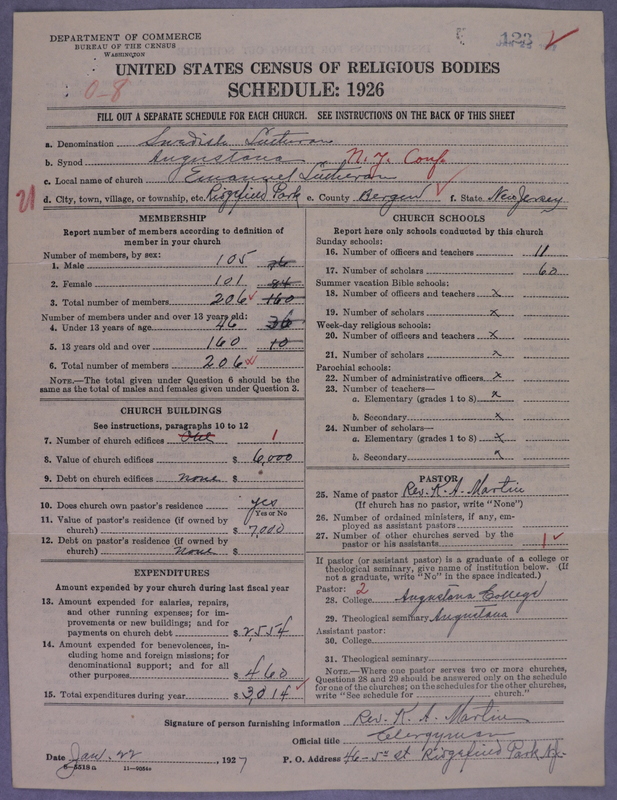 DEPARTMENT OF COMMERCE
BUREAU OF THE CENSUS
WASHINGTON
123 ✓
0-8
UNITED STATES CENSUS OF RELIGIOUS BODIES
SCHEDULE: 1926
FILL OUT A SEPARATE SCHEDULE FOR EACH CHURCH. SEE INSTRUCTIONS ON THE BACK OF THIS SHEET
a. Denomination Swedish Lutheran
b. Synod Augustana N.Y. Conf.
c. Local name of church Emanuel Lutheran
21 d. City, town, village, or township, etc. Ridgefield Park e. County Bergen ✓ f. State New Jersey
MEMBERSHIP
Report number of members according to definition of
member in your church
Number of members, by sex:
1. Male 105 76
2. Female 101 84
3. Total number of members 206 ✓ 160
Number of members under and over 13 years old:
4. Under 13 years of age 46 36
5. 13 years old and over 160 10
6. Total number of members 206
NOTE.—The total given under Question 6 should be
same as the total of males and females given under Question 3.
CHURCH BUILDINGS
See instructions, paragraphs 10 to 12
7. Number of church edifices One 1
8. Value of church edifices $ 6,000
9. Debt on church edifices none $
10. Does church own pastor's residence yes
Yes or No
11. Value of pastor's residence (if owned by
church) $ 7,000
12. Debt on pastor's residence (if owned by
church) none $
EXPENDITURES
Amount expended by your church during last fiscal year
13. Amount expended for salaries, repairs,
and other running expenses; for im-
provements or new buildings; and for
payments on church debt $ 2,554
14. Amount expended for benevolences, in-
cluding home and foreign missions; for
denominational support; and for all
other purposes $ 460
15. Total expenditures during year $ 3,014 ✓
CHURCH SCHOOLS
Report here only schools conducted by this church
Sunday schools:
16. Number of officers and teachers 11
17. Number of scholars 60
Summer vacation Bible schools:
18. Number of officers and teachers x
19. Number of scholars x
Week-day religious schools:
20. Number of officers and teachers x
21. Number of scholars x
Parochial schools:
22. Number of administrative officers x
23. Number of teachers—
a. Elementary (grades 1 to 8) x
b. Secondary x
24. Number of scholars—
a. Elementary (grades 1 to 8) x
b. Secondary x
PASTOR
25. Name of pastor Rev. K. A. Martin
(If church has no pastor, write "None")
26. Number of ordained ministers, if any, em-
ployed as assistant pastors
27. Number of other churches served by the
pastor or his assistants 1 ✓
If pastor (or assistant pastor) is a graduate of a college or
theological seminary, give name of institution below. (If
not a graduate, write "No" in the space indicated.)
Pastor: 2
28. College Augustana College
29. Theological seminary Augustana
Assistant pastor:
30. College
31. Theological seminary
NOTE.—Where one pastor serves two or more churches,
Questions 28 and 29 should be answered only on the schedule
for one of the churches; on the schedules for the other churches,
write "See schedule for church."
Signature of person furnishing information Rev. K. A. Martin
Official title Clergyman
Date Jan. 22, 1927 P. O. Address 46-5th St Ridgefield Park N.J.
8-5518a 11-9054